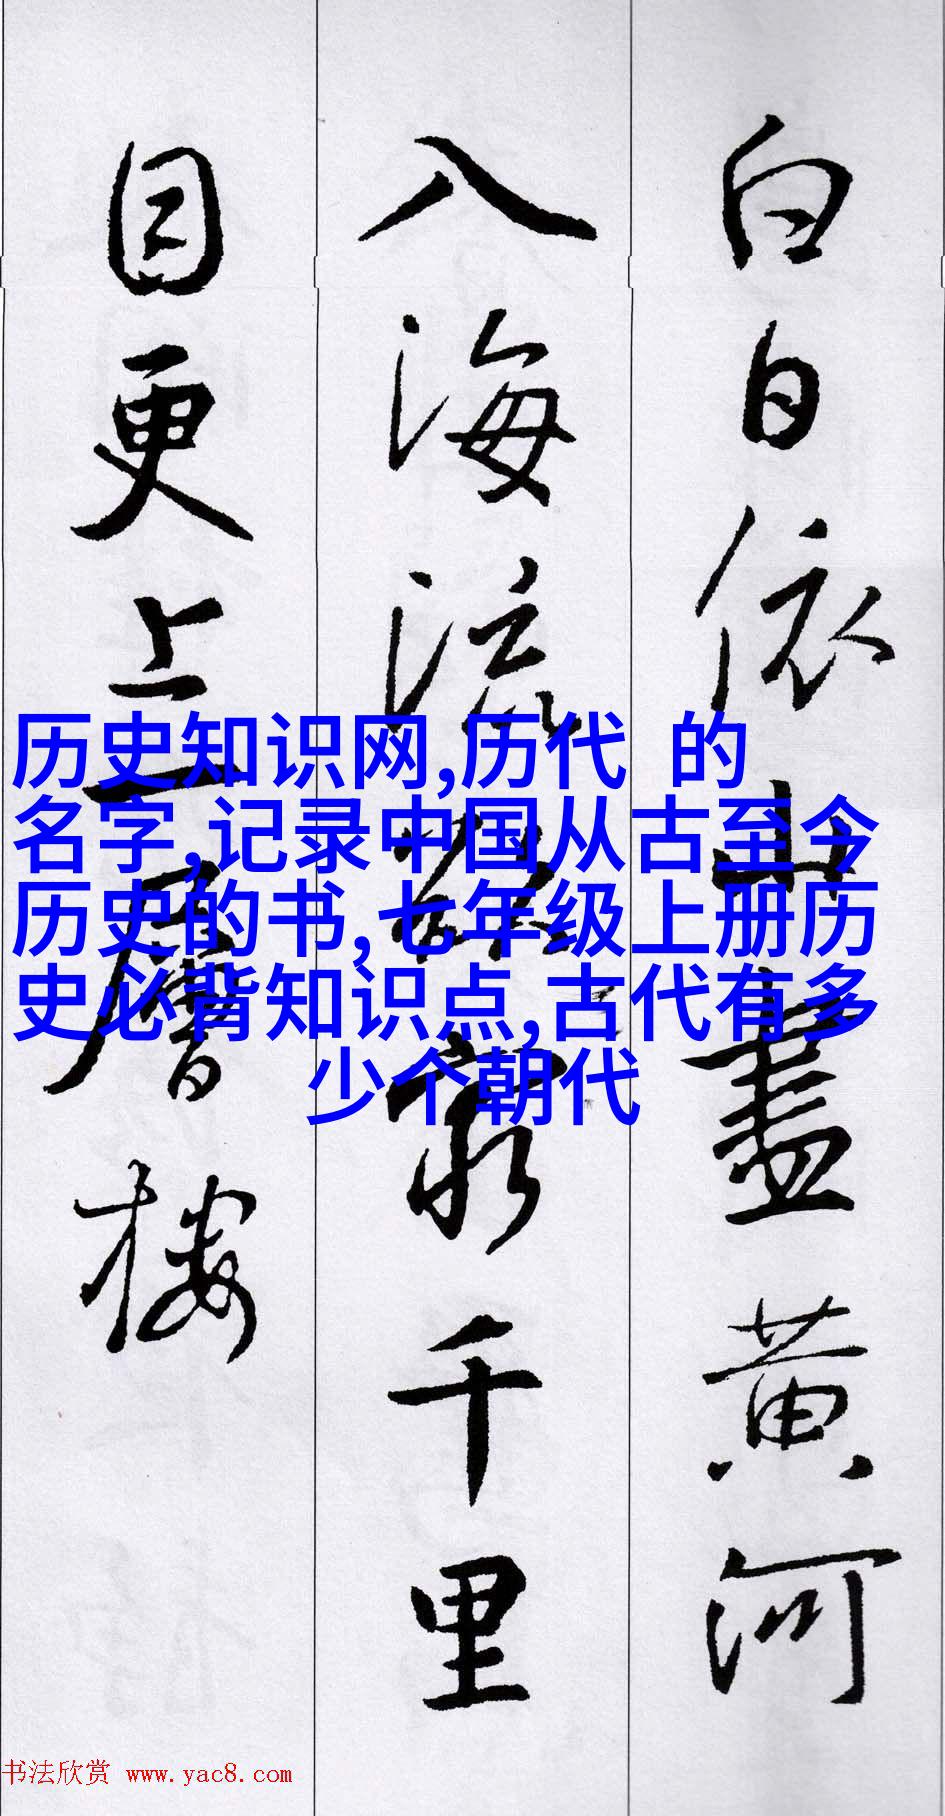 白日依山盡黄河
入海流欲窮千里
目更上一層樓
历史知识网,历代 的
名字,记录中国从古至今
历史的书,七年级上册历
史必背知识点,古代有多
少个朝代
书法欣赏 www.yac8.com